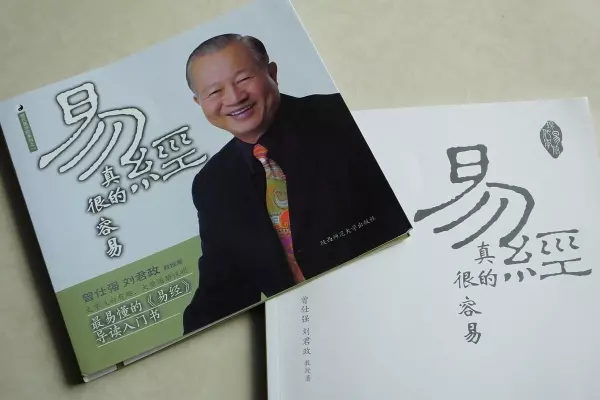 易經
真的
很容易
曾仕强 刘君政 教授著
最易懂的《易经》
导读入门书
陕西师范大学出版社
易經
真的
很容易
曾仕强 刘君政 教授著